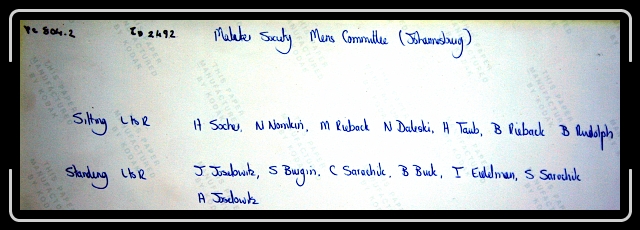 Pc 804.2 ID 2492 Malater Society Mens Committee (Johannesburg)
Sitting L to R H Sochu, N Nomkin, M Pieback N Daleski, H Taub, B Pieback B Rudolph
Standing L to R J Joselowitz, S Burgin, C Sarachik, B Buck, I Eudelman, S Sarachik
A Joselowitz